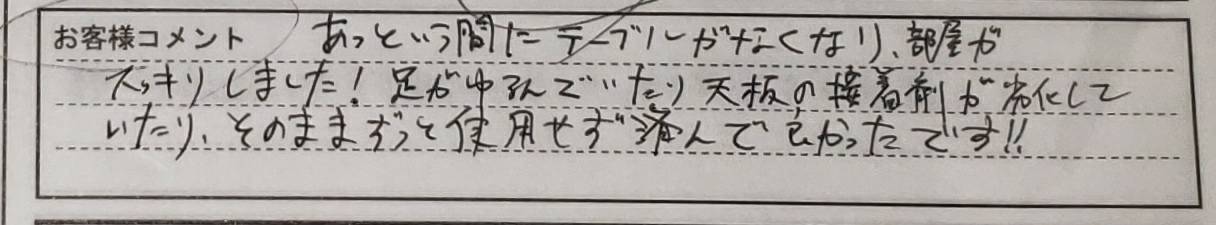 お客様コメント あっという間にテーブルがなくなり、部屋が
スッキリしました！足がゆるんでいたり天板の接着剤が劣化して
いたり、そのままずっと使用せず済んで良かったです!!